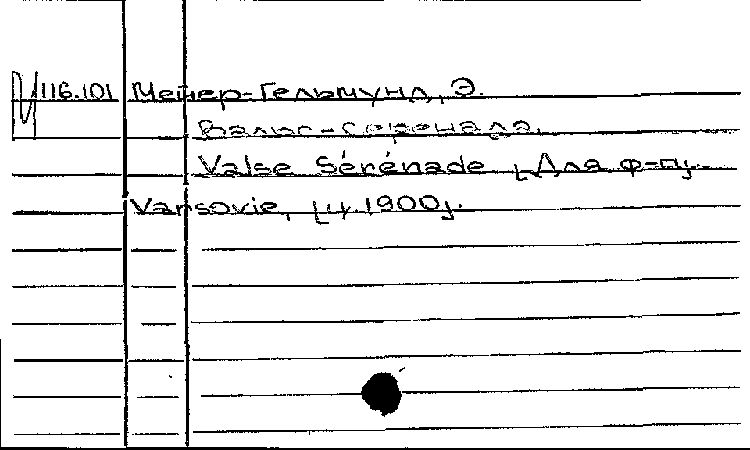 116.101 Мейер-Гельмунд, Э.
Вальс-серенада.
Valse Sérénade [Для ф-п].
Varsovie, [ц.1900].